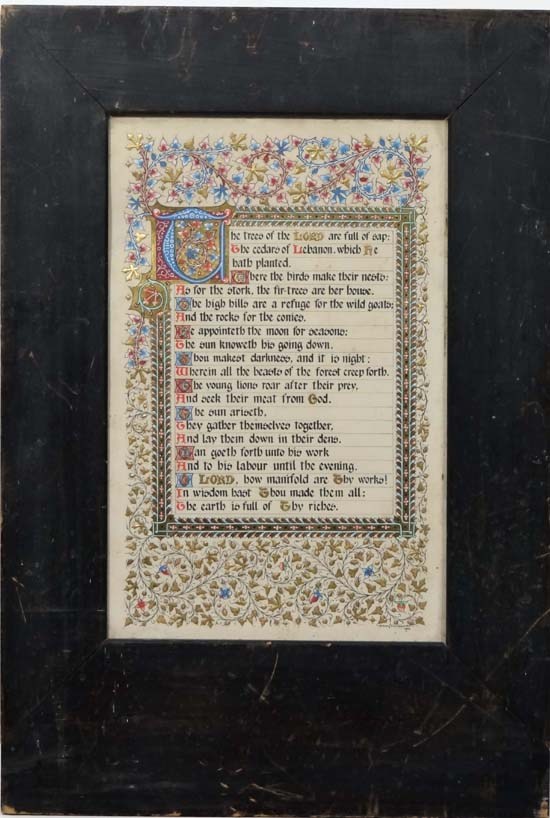 The trees of the LORD are full of sap:
The cedars of Lebanon, which He
hath planted.
Where the birds make their nests:
As for the stork, the fir-trees are her house.
The high hills are a refuge for the wild goats;
And the rocks for the conies.
He appointeth the moon for seasons:
The sun knoweth his going down.
Thou makest darkness, and it is night:
Wherein all the beasts of the forest creep forth.
The young lions roar after their prey,
And seek their meat from God.
The sun ariseth,
They gather themselves together,
And lay them down in their dens.
Man goeth forth unto his work
And to his labour until the evening.
O LORD, how manifold are Thy works!
In wisdom hast Thou made them all:
The earth is full of Thy riches.